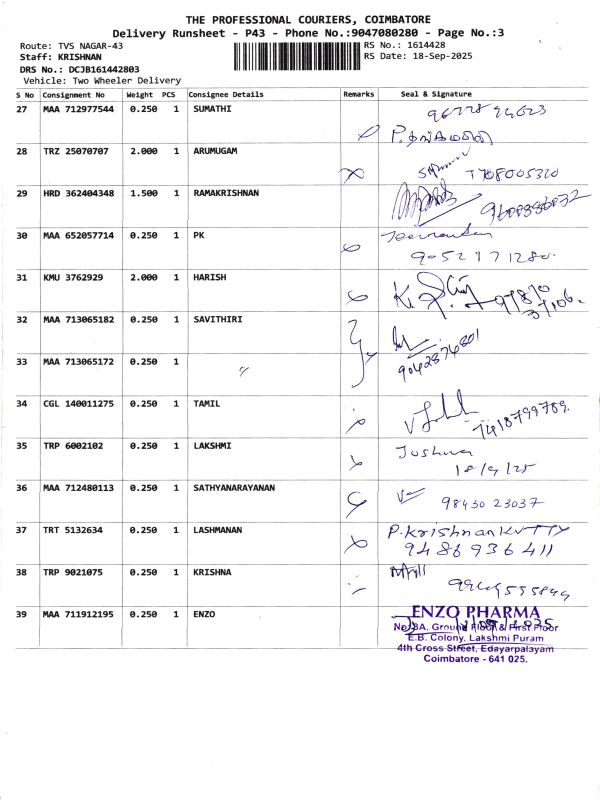 THE PROFESSIONAL COURIERS, COIMBATORE
Delivery Runsheet - P43 - Phone No.:9047080280 - Page No.:3
Route: TVS NAGAR-43
Staff: KRISHNAN
DRS No.: DCJB161442803
Vehicle: Two Wheeler Delivery
RS No.: 1614428
RS Date: 18-Sep-2025
S No Consignment No Weight PCS Consignee Details Remarks Seal & Signature
27 MAA 712977544 0.250 1 SUMATHI
28 TRZ 25070707 2.000 1 ARUMUGAM
29 HRD 362404348 1.500 1 RAMAKRISHNAN
30 MAA 652057714 0.250 1 PK
31 KMU 3762929 2.000 1 HARISH
32 MAA 713065182 0.250 1 SAVITHIRI
9042876801
33 MAA 713065172 0.250 1 〃
34 CGL 140011275 0.250 1 TAMIL
7418799789.
35 TRP 6002102 0.250 1 LAKSHMI Joshua
18/9/25
36 MAA 712480113 0.250 1 SATHYANARAYANAN
98430 23037
37 TRT 5132634 0.250 1 LASHMANAN P.KrishnanKUTTY
9486936411
38 TRP 9021075 0.250 1 KRISHNA
39 MAA 711912195 0.250 1 ENZO
ENZO PHARMA
No. 8A, Ground Floor & First Floor
E.B. Colony, Lakshmi Puram
4th Cross Street, Edayarpalayam
Coimbatore - 641 025.